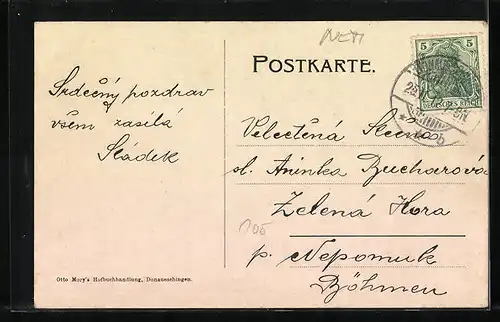 POSTKARTE.
5 5
DEUTSCHES REICH
Srdečný pozdrav
všem zasílá
Sládek
Velectěná Slečna
sl. Aninka Bucharová
Zelená Hora
p. Nepomuk
Böhmen
105
Otto Mory's Hofbuchhandlung, Donaueschingen.